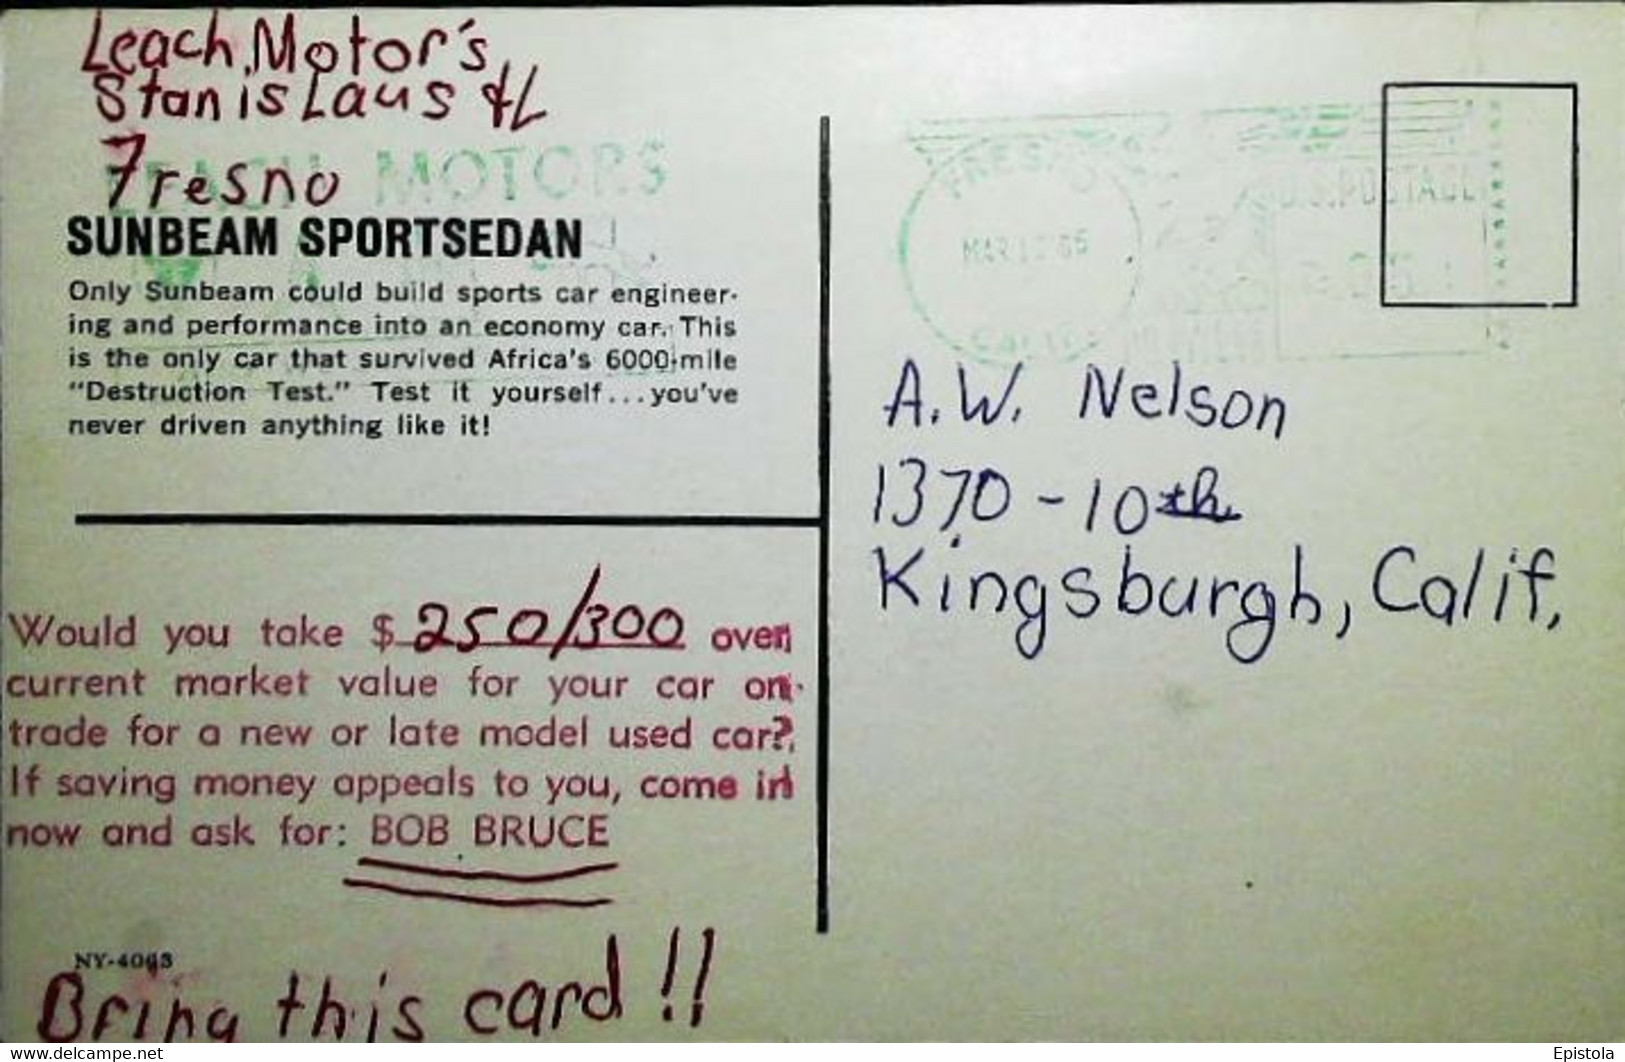 Leach Motor's
Stanislaus & L
Fresno
LEACH MOTORS
SUNBEAM SPORTSEDAN
Only Sunbeam could build sports car engineer-
ing and performance into an economy car. This
is the only car that survived Africa's 6000-mile
"Destruction Test." Test it yourself...you've
never driven anything like it!
Would you take $ 250/300 over
current market value for your car on
trade for a new or late model used car?
If saving money appeals to you, come in
now and ask for: BOB BRUCE
NY-4063
Bring this card!!
FRESNO
MAR
CALIF
U.S. POSTAGE
A.W. Nelson
1370-10th
Kingsburgh, Calif.
www.delcampe.net
Epistola